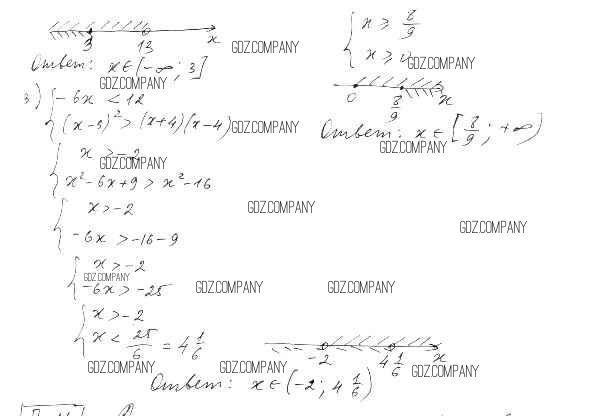 3 13 x
GDZ.COMPANY
Ответ: x ∈ [-∞; 3]
GDZ.COMPANY
x ≥ 8/9
x ≥ 0
GDZ.COMPANY
0 8/9 x
Ответ: x ∈ [8/9; +∞)
GDZ.COMPANY
3) -6x < 12
(x-3)² > (x+4)(x-4)
GDZ.COMPANY
x > -2
GDZ.COMPANY
x² - 6x + 9 > x² - 16
x > -2
GDZ.COMPANY
-6x > -16 - 9
GDZ.COMPANY
x > -2
GDZ.COMPANY
-6x > -25
GDZ.COMPANY
GDZ.COMPANY
x > -2
x < 25/6 = 4 1/6
-2 4 1/6 x
GDZ.COMPANY
GDZ.COMPANY
GDZ.COMPANY
Ответ: x ∈ (-2; 4 1/6)